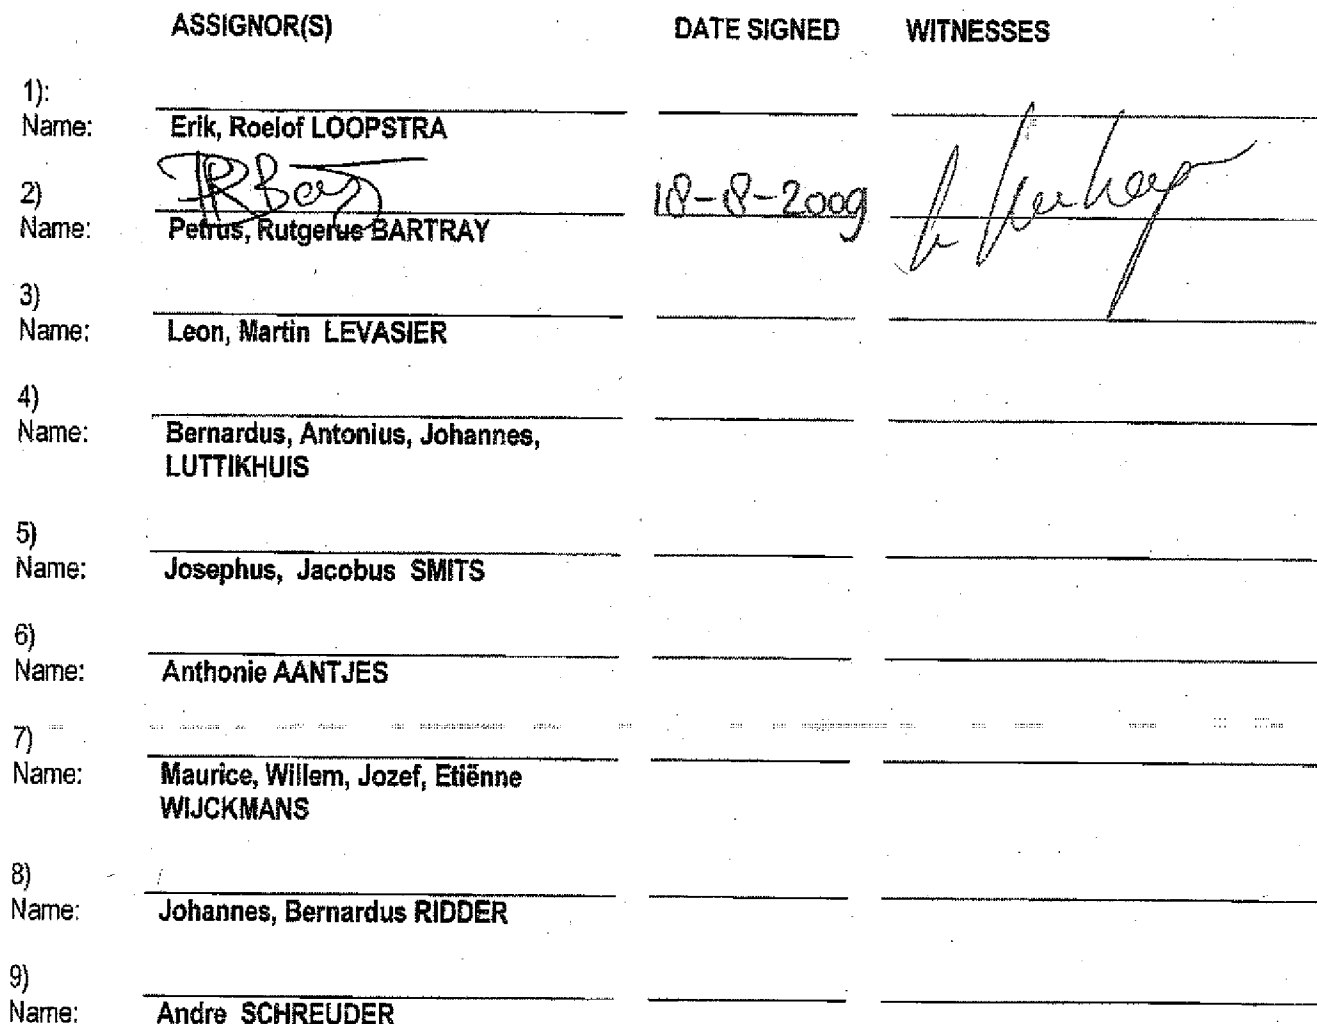 ASSIGNOR(S) DATE SIGNED WITNESSES
1):
Name: Erik, Roelof LOOPSTRA
2) 18-8-2009
Name: Petrus, Rutgerus BARTRAY
3)
Name: Leon, Martin LEVASIER
4)
Name: Bernardus, Antonius, Johannes,
LUTTIKHUIS
5)
Name: Josephus, Jacobus SMITS
6)
Name: Anthonie AANTJES
7)
Name: Maurice, Willem, Jozef, Etiënne
WIJCKMANS
8)
Name: Johannes, Bernardus RIDDER
9)
Name: Andre SCHREUDER